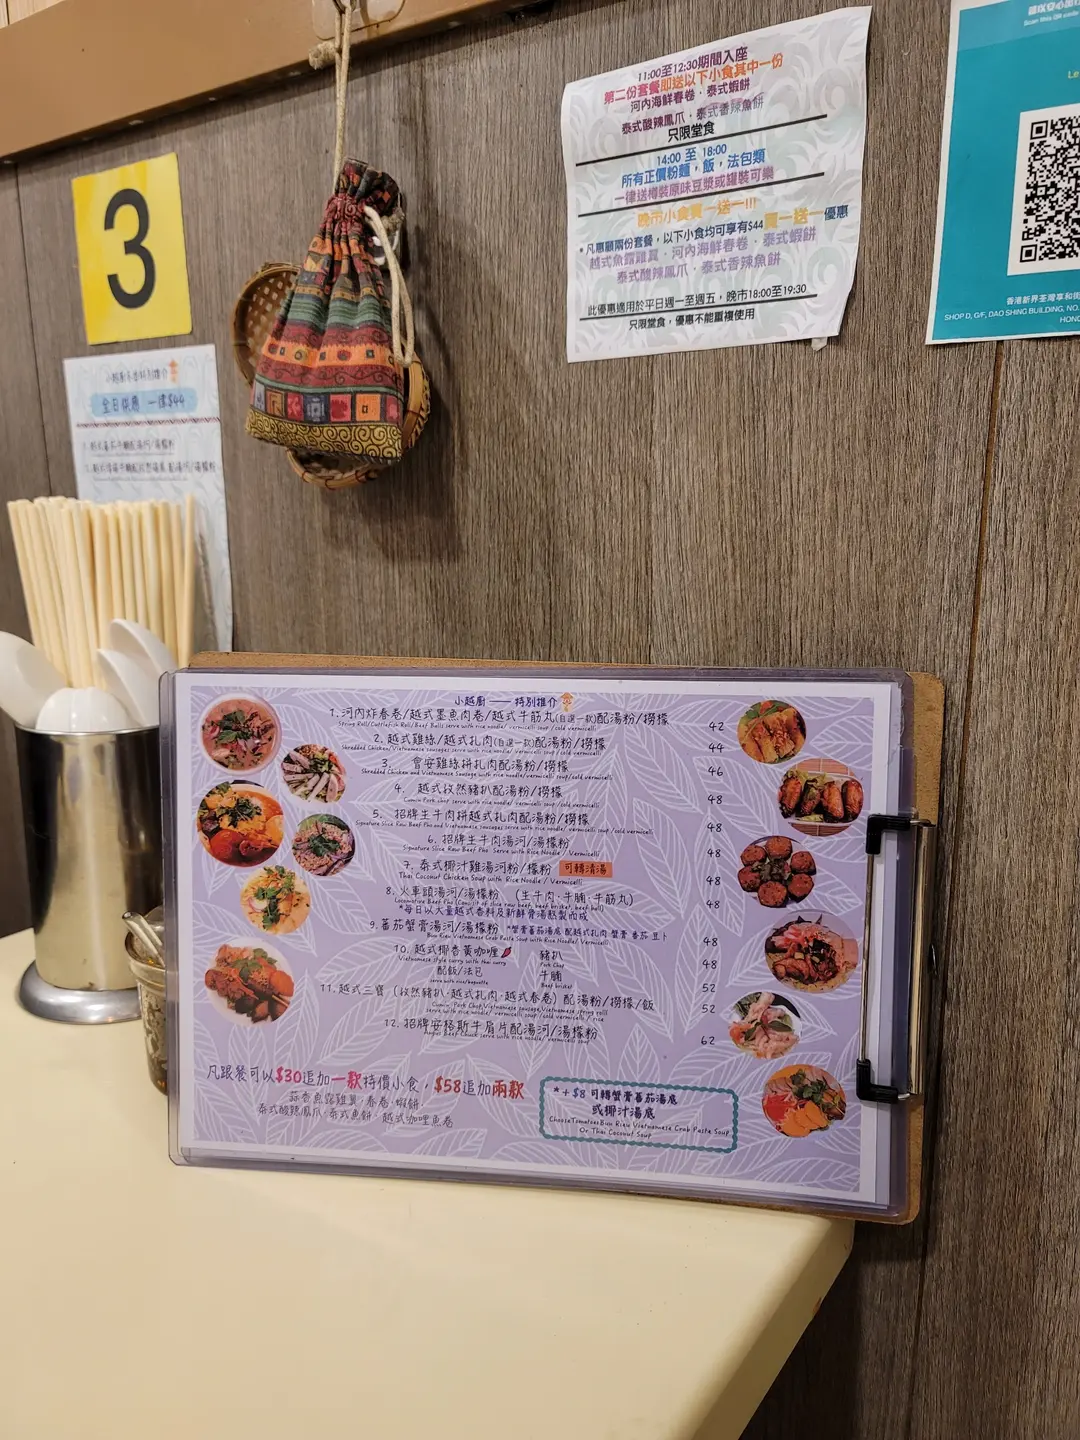 3
11:00至12:30期間入座
第二份套餐即送以下小食其中一份
河內海鮮春卷．泰式蝦餅
泰式酸辣鳳爪．泰式香辣魚餅
只限堂食
14:00 至 18:00
所有正價粉麵，飯，法包類
一律送樽裝原味豆漿或罐裝可樂
晚市小食買一送一!!!
*凡惠顧兩份套餐，以下小食均可享有$44買一送一優惠
越式魚露雞翼．河內海鮮春卷．泰式蝦餅
泰式酸辣鳳爪．泰式香辣魚餅
此優惠適用於平日週一至週五，晚市18:00至19:30
只限堂食，優惠不能重複使用
Scan this QR code
Le
香港新界荃灣享和街
SHOP D, G/F, DAO SHING BUILDING, NO.
HONG
小越廚冬日特別推介
全日供應 一律$44
小越廚 —— 特別推介
1. 河內炸春卷/越式墨魚肉卷/越式牛筋丸(自選一款)配湯粉/撈檬 42
Spring Roll/Cuttlefish Roll/Beef Balls serve with rice noodle/ vermicelli soup / cold vermicelli
2. 越式雞絲/越式扎肉(自選一款)配湯粉/撈檬 44
Shredded Chicken/Vietnamese sausages serve with rice noodle/ vermicelli soup /cold vermicelli
3. 會安雞絲拼扎肉配湯粉/撈檬 46
Shredded Chicken and Vietnamese Sausage with rice noodle/vermicelli soup/cold vermicelli
4. 越式孜然豬扒配湯粉/撈檬 48
Cumin Pork chop serve with rice noodle/vermicelli soup / cold vermicelli
5. 招牌生牛肉拼越式扎肉配湯粉/撈檬 48
Signature Slice Raw Beef Pho and Vietnamese sausages serve with rice noodle/ vermicelli soup / cold vermicelli
6. 招牌生牛肉湯河/湯檬粉 48
Signature Slice Raw Beef Pho Serve with Rice Noodle / Vermicelli
7. 泰式椰汁雞湯河粉/檬粉 可轉清湯 48
Thai Coconut Chicken Soup with Rice Noodle / Vermicelli
8. 火車頭湯河/湯檬粉 (生牛肉．牛腩．牛筋丸) 48
Locomotive Beef Pho (Consist of slice raw beef, beef brisket, beef ball)
*每日以大量越式香料及新鮮骨湯熬製而成
9. 蕃茄蟹膏湯河/湯檬粉 *蟹膏蕃茄湯底 配越式扎肉 蟹膏 番茄 豆卜 48
Bun Rieu Vietnamese Crab Paste Soup with Rice Noodle/ Vermicelli
10. 越式椰香黃咖喱 豬扒 48
Vietnamese style curry with thai curry Pork Chop
配飯/法包 牛腩 52
serve with rice/baguette Beef brisket
11. 越式三寶 (孜然豬扒．越式扎肉．越式春卷) 配湯粉/撈檬/飯 52
Cumin Pork Chop,Vietnamese sausage,Vietnamese spring roll
serve with rice noodle/ vermicelli soup /cold vermicelli / rice
12. 招牌安格斯牛肩片配湯河/湯檬粉 62
Angus Beef Chuck serve with rice noodle/ vermicelli soup
凡跟餐可以$30追加一款特價小食，$58追加兩款
蒜香魚露雞翼．春卷．蝦餅．
泰式酸辣鳳爪．泰式魚餅．越式咖哩魚卷
*+$8 可轉蟹膏蕃茄湯底
或椰汁湯底
ChooseTomatoesBun Rieu Vietnamese Crab Paste Soup
Or Thai Coconut Soup